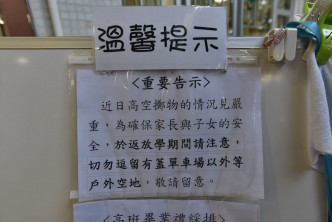 溫馨提示
<重要告示>
近日高空擲物的情況見嚴
重，為確保家長與子女的安
全，於返放學期間請注意，
切勿逗留有蓋單車場以外等
戶外空地，敬請留意。
高班畢業禮綵排